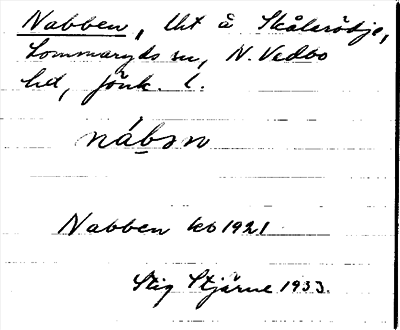 Nabben, lht å Skålsrödje,
Lommaryds sn, N. Vedbo
hd, Jönk. l.
nábən
Nabben kb 1921
Stig Stjärne 1933.